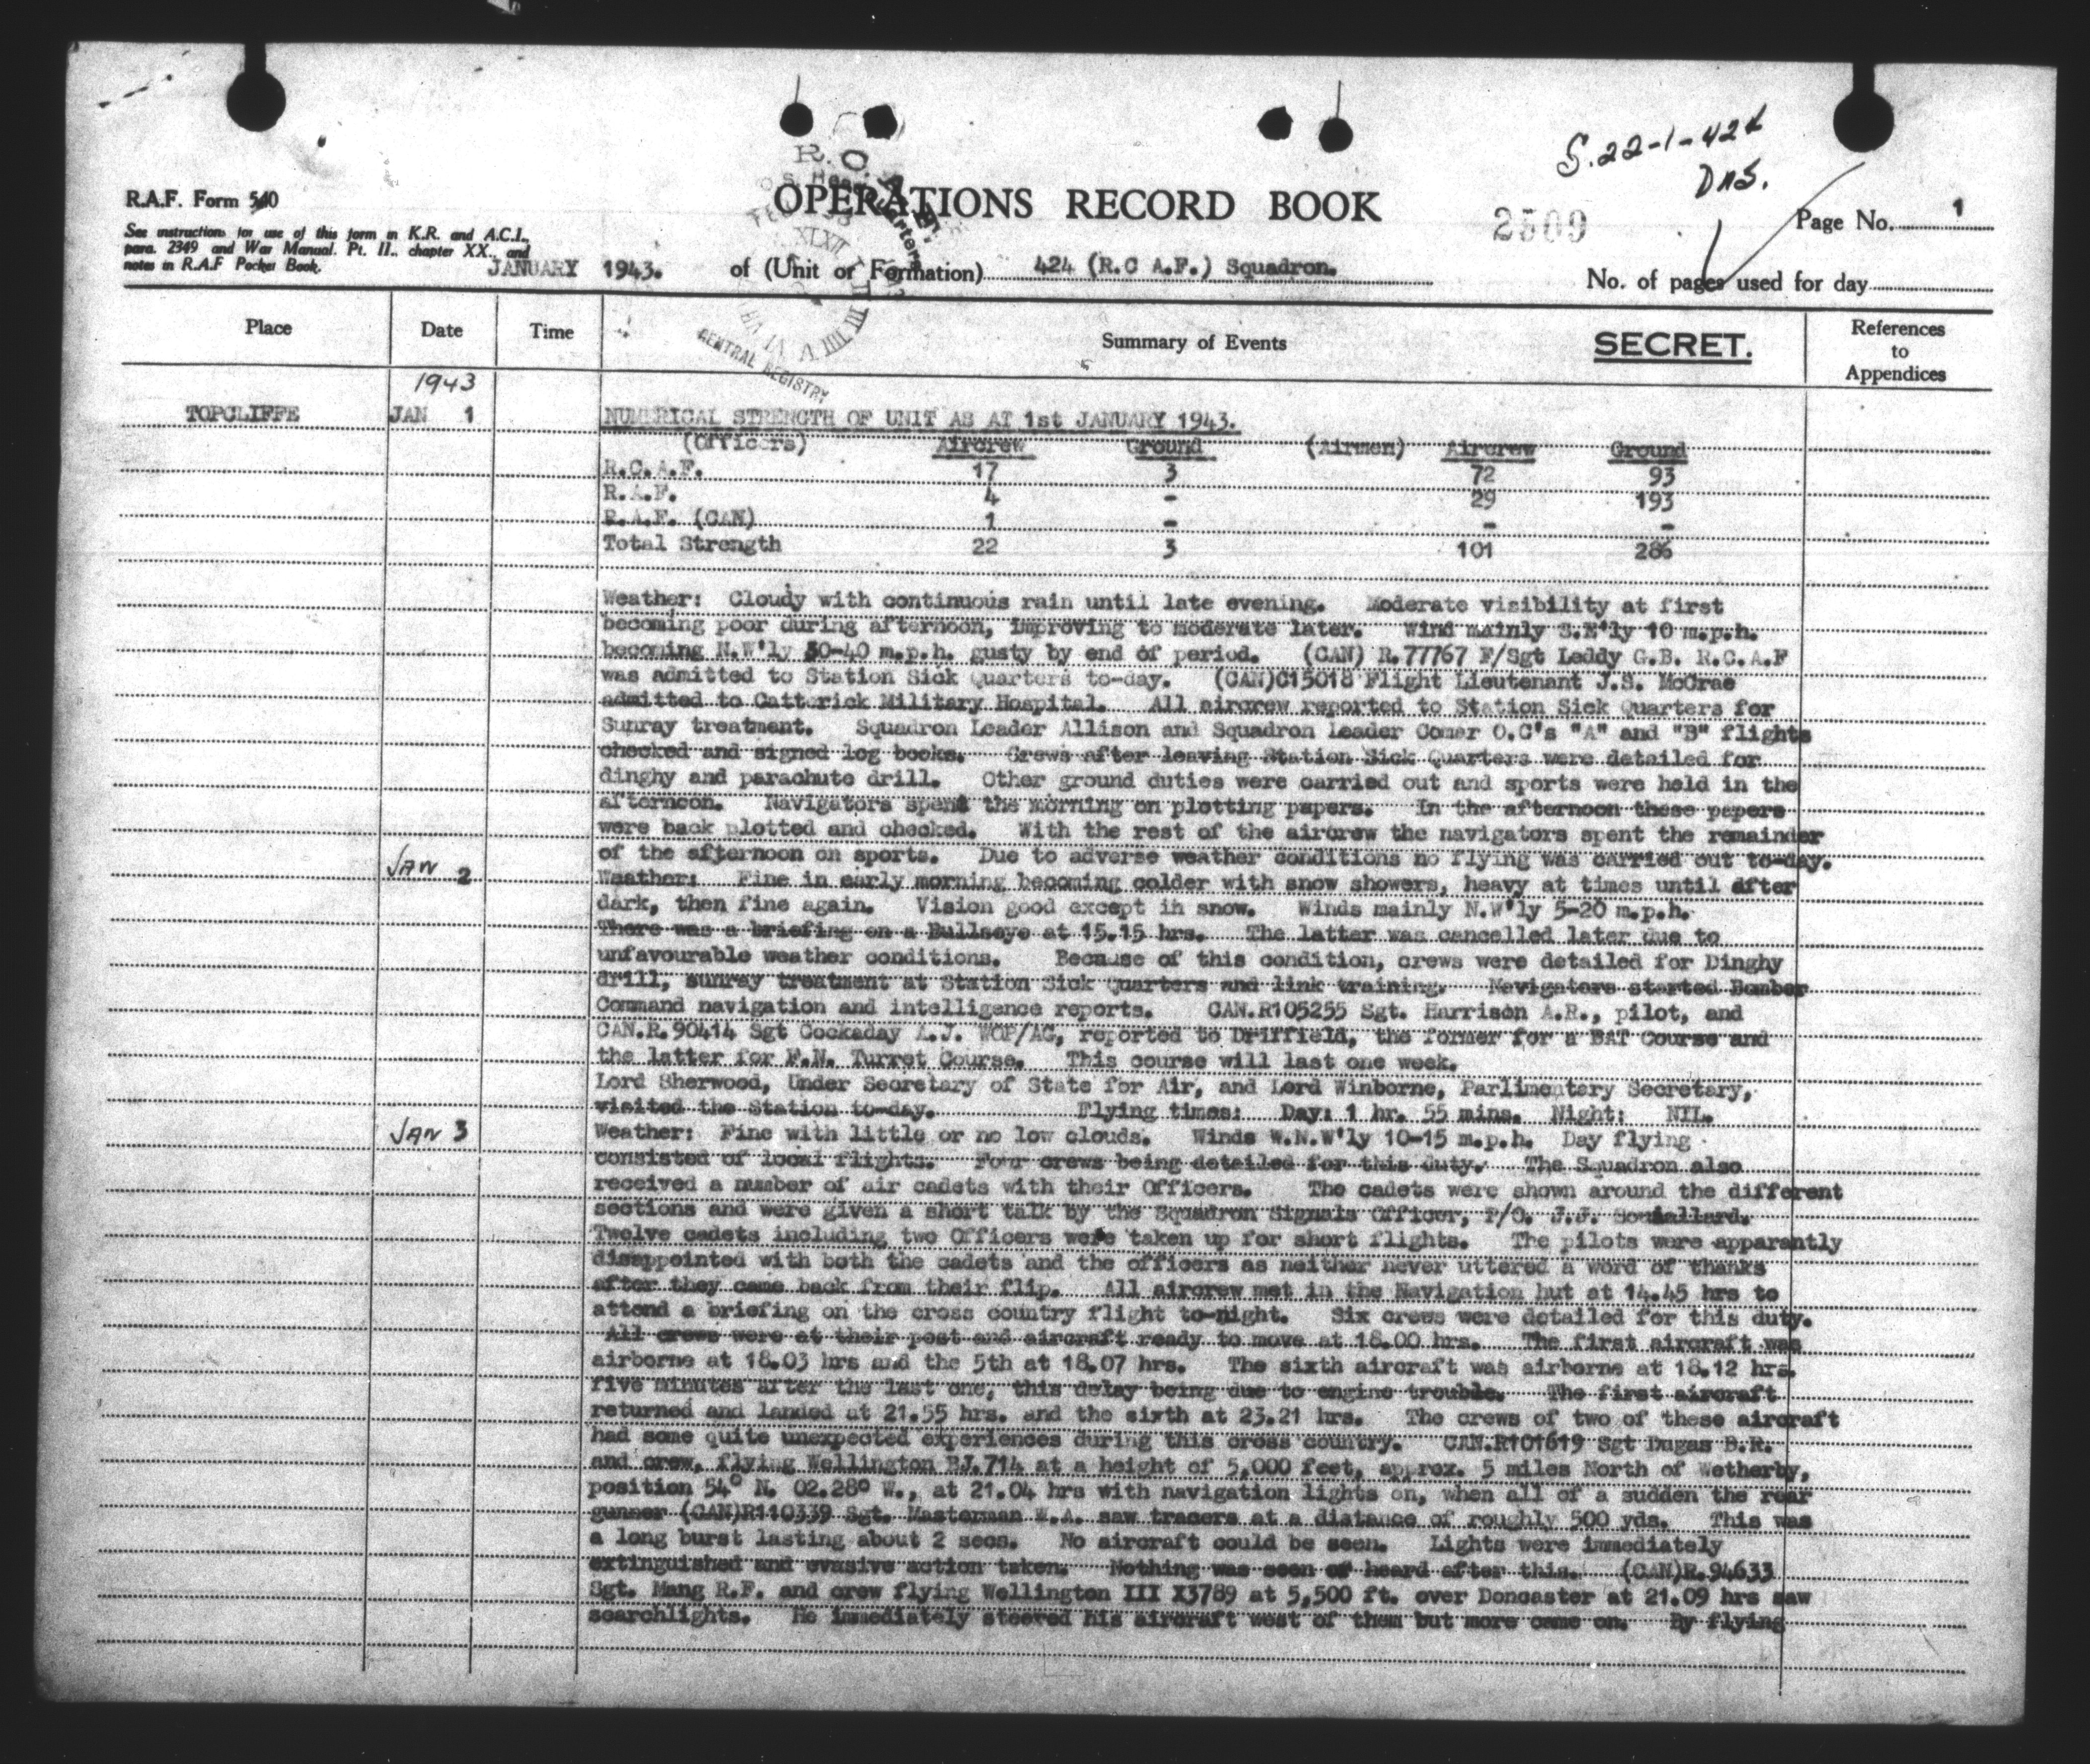 S.22-1-424
DNS.
R.A.F. Form 540
See instructions for use of this form in K.R. and A.C.I.,
para. 2349 and War Manual. Pt. II., chapter XX., and
notes in R.A.F Pocket Book.
OPERATIONS RECORD BOOK
2509
Page No. 1
JANUARY 1943. of (Unit or Formation) 424 (R.C A.F.) Squadron.
No. of pages used for day
CENTRAL REGISTRY
Place Date Time Summary of Events SECRET. References to Appendices
1943
TOPCLIFFE JAN 1 NUMERICAL STRENGTH OF UNIT AS AT 1st JANUARY 1943.
(Officers) Aircrew Ground (Airmen) Aircrew Ground
R.C.A.F. 17 3 72 93
R.A.F. 4 - 29 193
R.A.F. (CAN) 1 - - -
Total Strength 22 3 101 286
Weather: Cloudy with continuous rain until late evening. Moderate visibility at first
becoming poor during afternoon, improving to moderate later. Wind mainly S.E'ly 10 m.p.h.
becoming N.W'ly 30-40 m.p.h. gusty by end of period. (CAN) R.77767 F/Sgt Leddy G.B. R.C.A.F
was admitted to Station Sick Quarters to-day. (CAN)C15018 Flight Lieutenant J.S. McCrae
admitted to Catterick Military Hospital. All aircrew reported to Station Sick Quarters for
Sunray treatment. Squadron Leader Allison and Squadron Leader Comar O.C's "A" and "B" flights
checked and signed log books. Crews after leaving Station Sick Quarters were detailed for
dinghy and parachute drill. Other ground duties were carried out and sports were held in the
afternoon. Navigators spent the morning on plotting papers. In the afternoon these papers
were back plotted and checked. With the rest of the aircrew the navigators spent the remainder
of the afternoon on sports. Due to adverse weather conditions no flying was carried out to-day.
JAN 2 Weather: Fine in early morning becoming colder with snow showers, heavy at times until after
dark, then fine again. Vision good except in snow. Winds mainly N.W'ly 5-20 m.p.h.
There was a briefing on a Bullseye at 15.15 hrs. The latter was cancelled later due to
unfavourable weather conditions. Because of this condition, crews were detailed for Dinghy
drill, sunray treatment at Station Sick Quarters and link training. Navigators started Bomber
Command navigation and intelligence reports. CAN.R105255 Sgt. Harrison A.R., pilot, and
CAN.R.90414 Sgt Cockaday A.J. WOP/AG, reported to Driffield, the former for a BAT Course and
the latter for F.N. Turret Course. This course will last one week.
Lord Sherwood, Under Secretary of State for Air, and Lord Winborne, Parlimentary Secretary,
visited the Station to-day. Flying times: Day: 1 hr. 55 mins. Night: NIL.
JAN 3 Weather: Fine with little or no low clouds. Winds W.N.W'ly 10-15 m.p.h. Day flying
consisted of local flights. Four crews being detailed for this duty. The Squadron also
received a number of air cadets with their Officers. The cadets were shown around the different
sections and were given a short talk by the Squadron Signals Officer, P/O. J.J.
Twelve cadets including two Officers were taken up for short flights. The pilots were apparantly
disappointed with both the cadets and the officers as neither never uttered a word of thanks
after they came back from their flip. All aircrew met in the Navigation hut at 14.45 hrs to
attend a briefing on the cross country flight to-night. Six crews were detailed for this duty.
All crews were at their post and aircraft ready to move at 18.00 hrs. The first aircraft was
airborne at 18.03 hrs and the 5th at 18.07 hrs. The sixth aircraft was airborne at 18.12 hrs.
five minutes after the last one, this delay being due to engine trouble. The first aircraft
returned and landed at 21.55 hrs. and the sixth at 23.21 hrs. The crews of two of these aircraft
had some quite unexpected experiences during this cross country. CAN.R101619 Sgt Dugas B.R.
and crew, flying Wellington BJ.714 at a height of 5,000 feet, approx. 5 miles North of Wetherby,
position 54° N. 02.28° W., at 21.04 hrs with navigation lights on, when all of a sudden the rear
gunner (CAN)R110339 Sgt. Masterman W.A. saw tracers at a distance of roughly 500 yds. This was
a long burst lasting about 2 secs. No aircraft could be seen. Lights were immediately
extinguished and evasive action taken. Nothing was seen or heard after this. (CAN)R.94633
Sgt. Mang R.F. and crew flying Wellington III X3789 at 5,500 ft. over Doncaster at 21.09 hrs saw
searchlights. He immediately steered his aircraft west of them but more came on. By flying